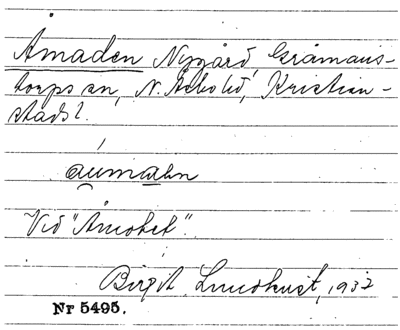 Åmaden Nygård, Gråmans-
torps sn, N. Åsbo hd, Kristian-
stads l.
áumaden
Vid "Åmotet".
Birgit Lindkvist, 1932
Nr 5495.